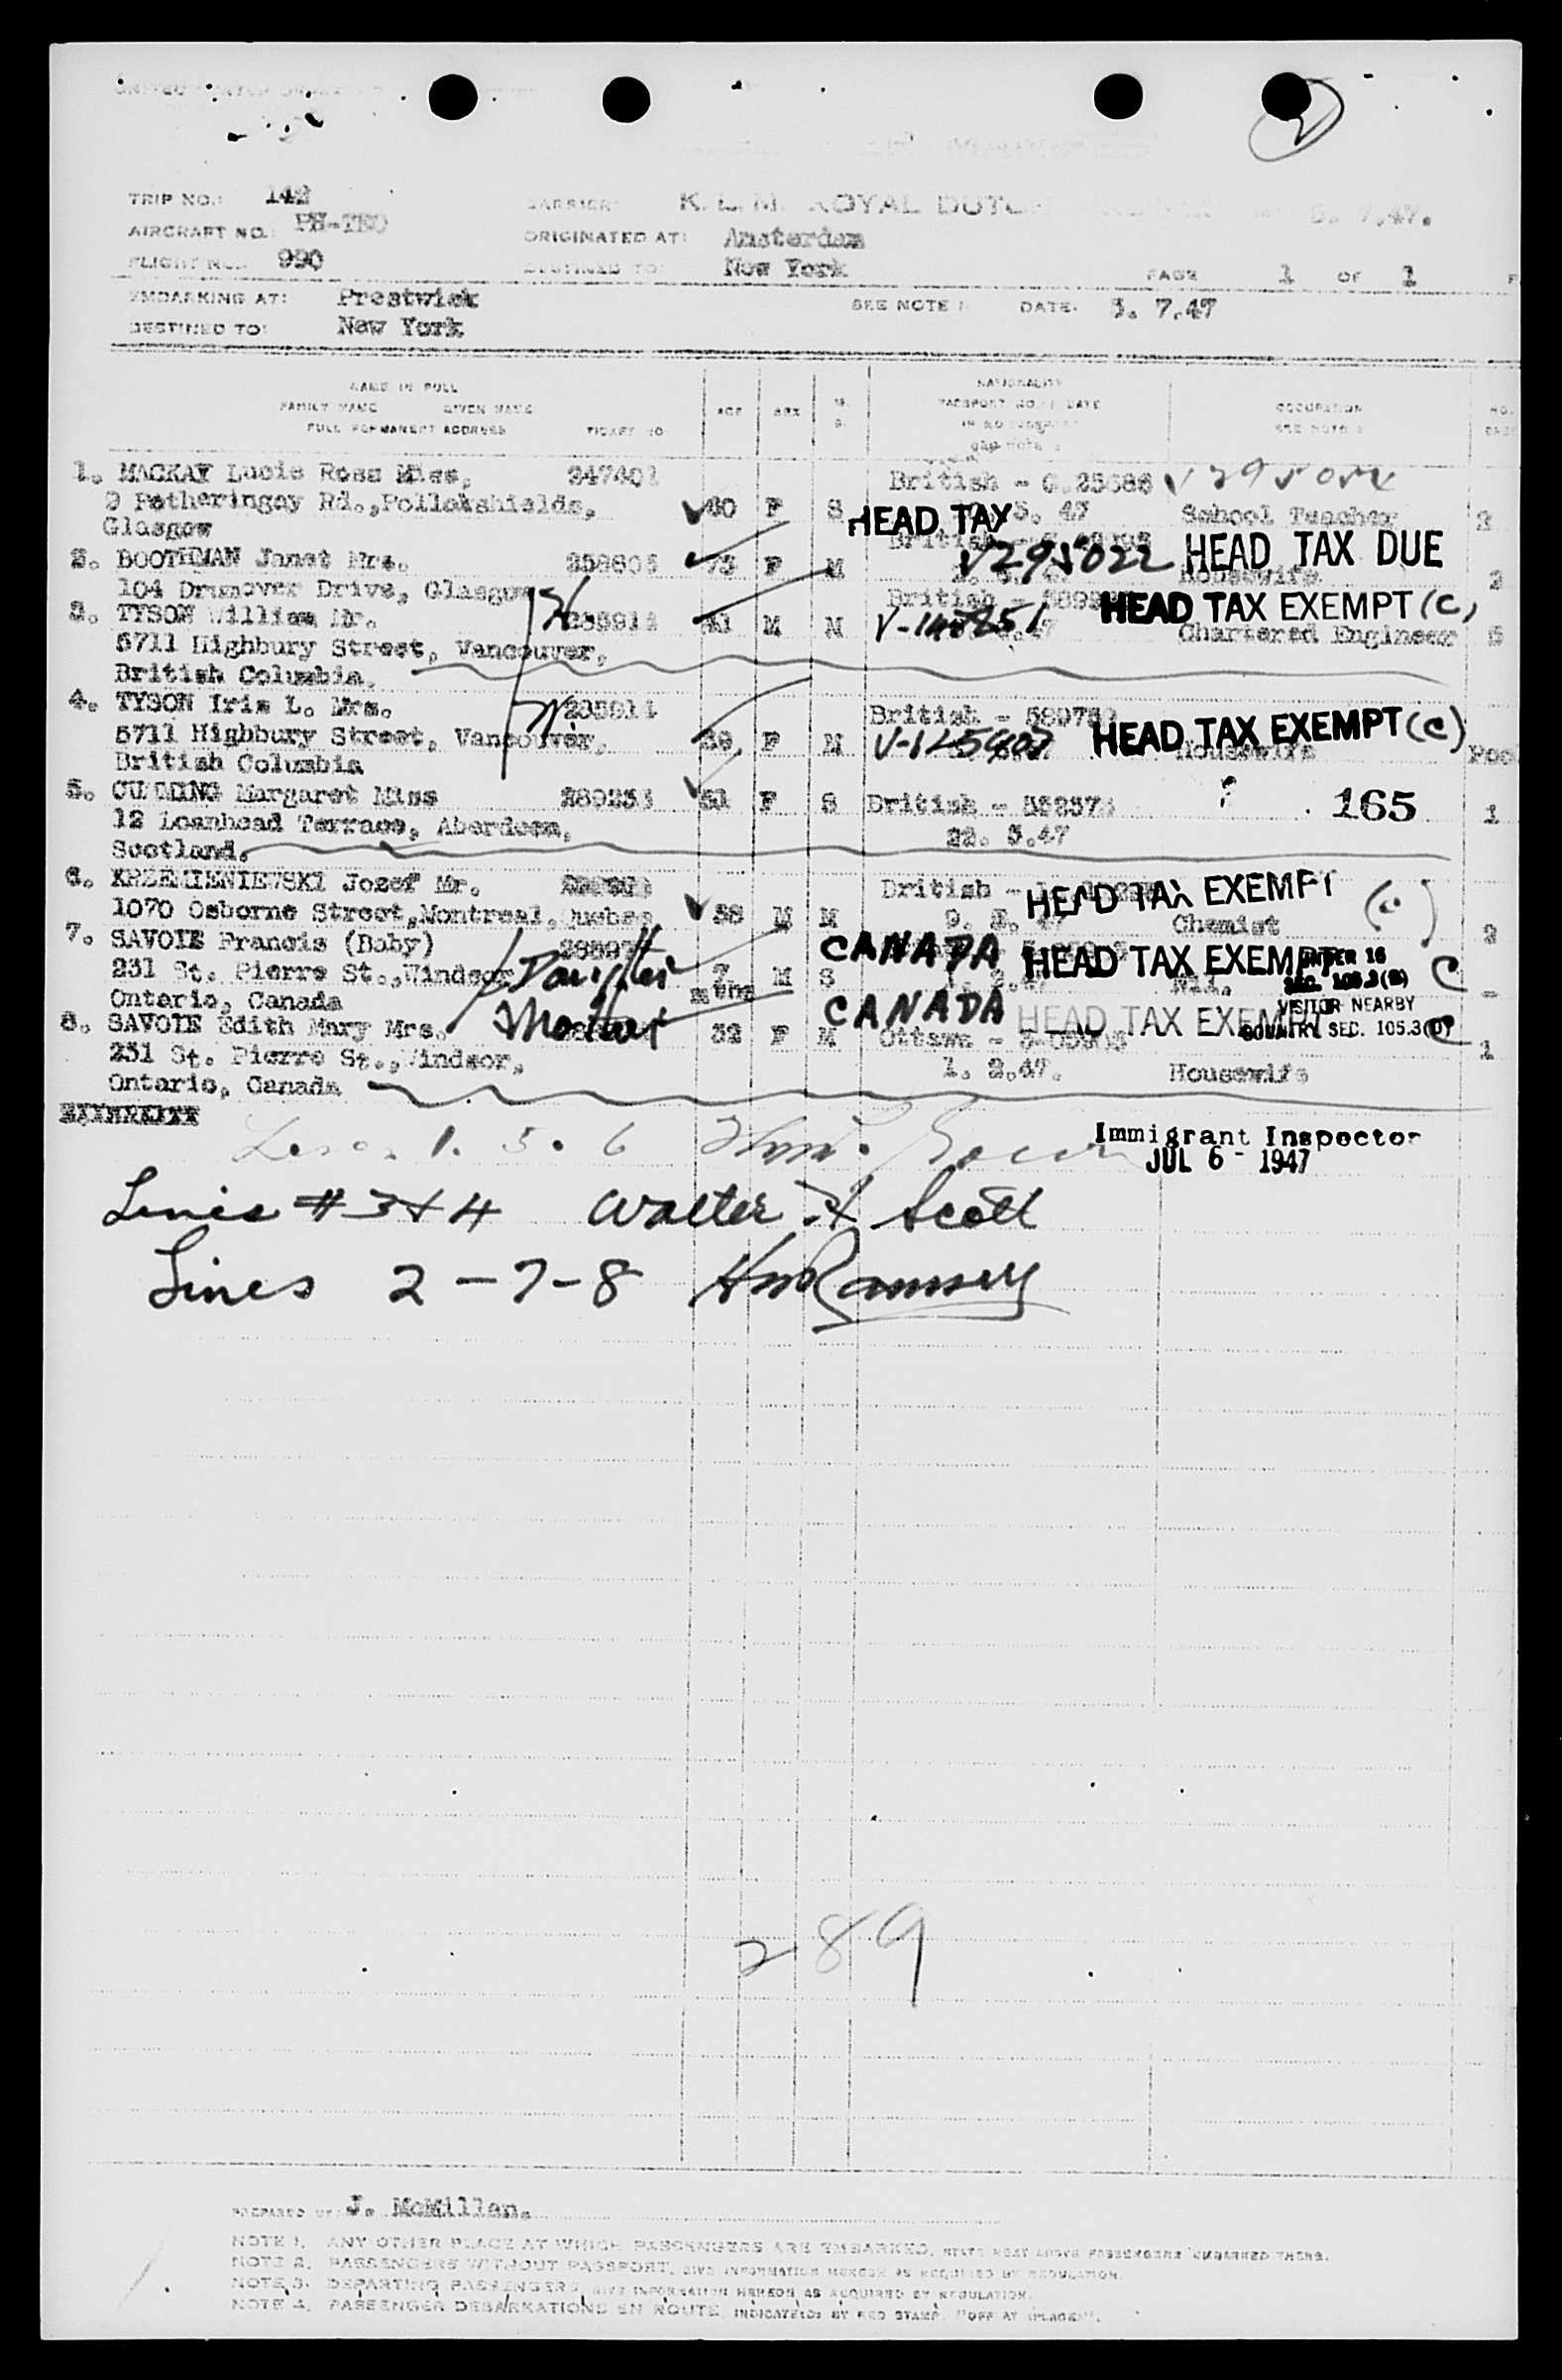 TRIP NO.: 142
CARRIER: K. L. M. ROYAL DUTCH 5. 7.47.
AIRCRAFT NO.: PH-TEO
ORIGINATED AT: Amsterdam
FLIGHT NO. 990
DESTINED TO: New York
PAGE 1 OF 1
EMBARKING AT: Prestwick
SEE NOTE DATE. 5. 7.47
DESTINED TO: New York
NAME IN FULL
FAMILY NAME GIVEN NAME
FULL PERMANENT ADDRESS TICKET NO.
AGE SEX
NATIONALITY
PASSPORT NO. DATE
OCCUPATION
SEE NOTE
1. MACKAY Lucie Ross Miss, 247401 British - C.25686 V295054
9 Fotheringay Rd.,Pollokshields, 60 F S 5. 47 School Teacher 2
Glasgow HEAD TAX
2. BOOTHMAN Janet Mrs. 258605 73 F M British V295022 HEAD TAX DUE Housewife 2
104 Drumover Drive, Glasgow
3. TYSON William Mr. 285914 41 M M British V-148251 HEAD TAX EXEMPT (C)
5711 Highbury Street, Vancouver, Chartered Engineer 5
British Columbia.
4. TYSON Iris L. Mrs. 285914 British
5711 Highbury Street, Vancouver, 39 F M V-125407 HEAD TAX EXEMPT (C) Housewife Pool
British Columbia
5. CUMMING Margaret Miss 289253 51 F S British - 552373 ? 165 1
12 Loanhead Terrace, Aberdeen, 22. 5.47
Scotland.
6. KRZEMIENIEWSKI Jozef Mr. British HEAD TAX EXEMPT (C)
1070 Osborne Street,Montreal, Quebec 38 M M 9. 47 Chemist 2
7. SAVOIE Francis (Baby) CANADA HEAD TAX EXEMPT UNDER 16
231 St. Pierre St.,Windsor, Daughter 7 mths M S Nil. SEC. 105.3(B) C -
Ontario, Canada
8. SAVOIE Edith Mary Mrs. Mother 32 F M CANADA HEAD TAX EXEMPT VISITOR NEARBY COUNTRY SEC. 105.3(D) C
231 St. Pierre St.,Windsor, Ottawa 1
Ontario, Canada 1. 2.47. Housewife
1. 5. 6
Immigrant Inspector
JUL 6 - 1947
Lines #3&4 Walter A Scott
Lines 2 - 7 - 8 HM Ramsey
289
PREPARED BY J. McMillan.
NOTE 1. ANY OTHER PLACE AT WHICH PASSENGERS ARE EMBARKED, STATE NEXT ABOVE PASSENGERS EMBARKED THERE.
NOTE 2. PASSENGERS WITHOUT PASSPORT, GIVE INFORMATION HEREON AS REQUIRED BY REGULATION.
NOTE 3. DEPARTING PASSENGERS, GIVE INFORMATION HEREON AS REQUIRED BY REGULATION.
NOTE 4. PASSENGER DEBARKATIONS EN ROUTE, INDICATED BY RED STAMP, "OFF AT (PLACE)".